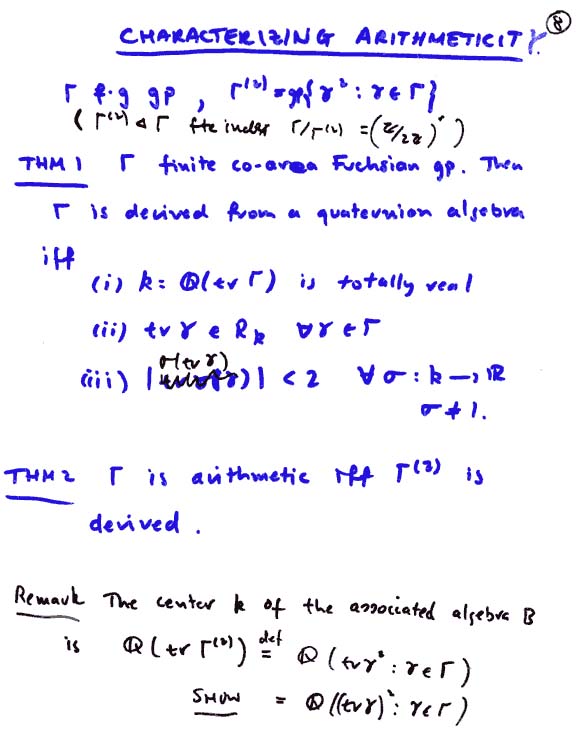 CHARACTERIZING ARITHMETICITY. ⑧
Γ f.g gp , Γ⁽²⁾ = gp{γ² : γ ∈ Γ}
( Γ⁽²⁾ ◁ Γ fte index Γ/Γ⁽²⁾ = (Z/2Z)ʳ )
THM 1 Γ finite co-area Fuchsian gp. Then
Γ is derived from a quaternion algebra
iff
(i) k = Q(tr Γ) is totally real
(ii) tr γ ∈ R_k ∀γ ∈ Γ
(iii) |σ(tr γ)| < 2 ∀ σ : k → ℝ
σ ≠ 1.
THM 2 Γ is arithmetic iff Γ⁽²⁾ is
derived.
Remark The center k of the associated algebra B
is Q(tr Γ⁽²⁾) def= Q(tr γ² : γ ∈ Γ)
SHOW = Q((tr γ)² : γ ∈ Γ)